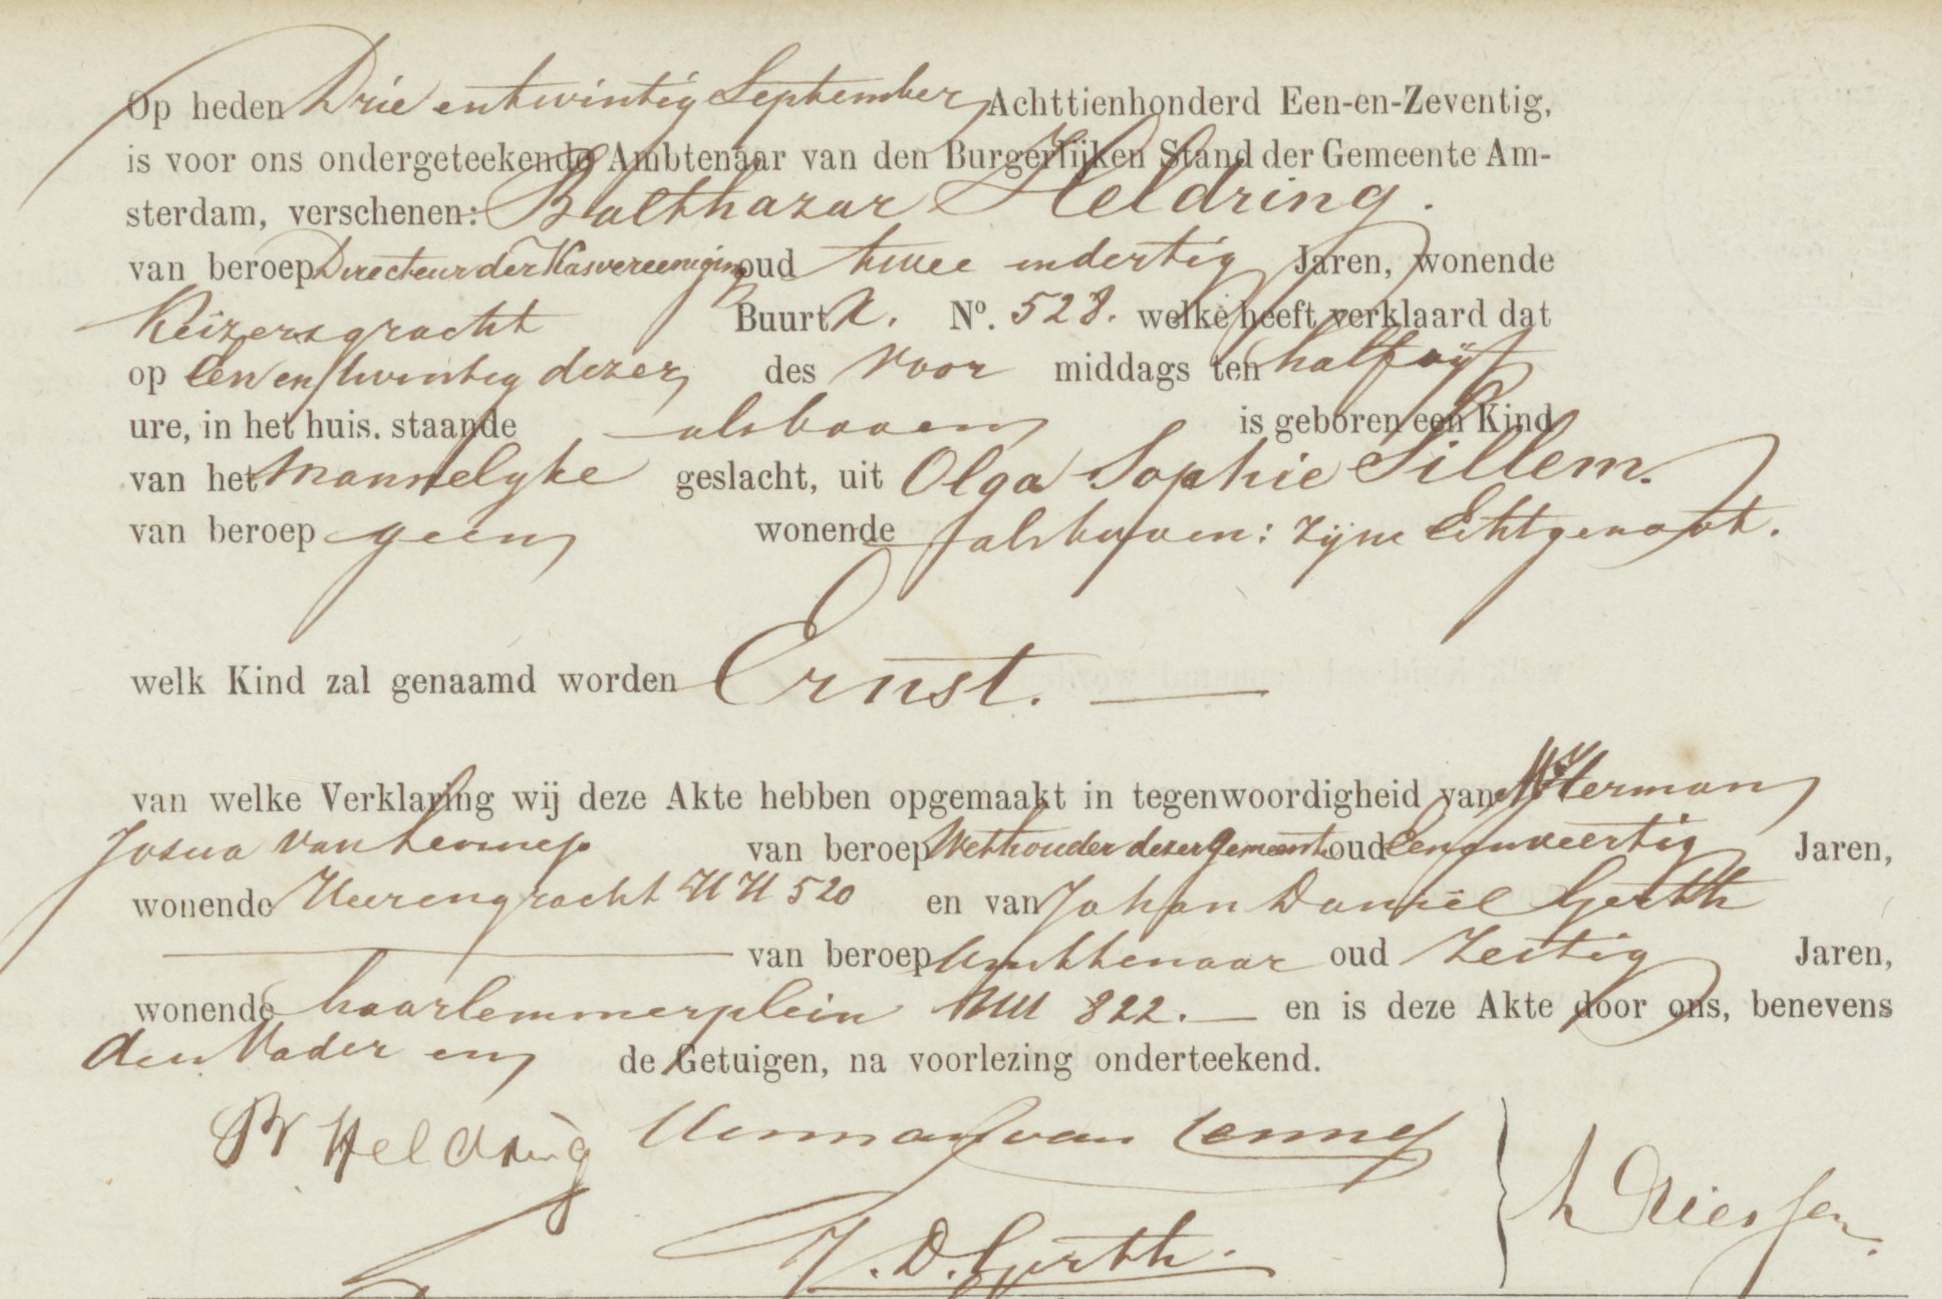 Op heden Drie entwintig September Achttienhonderd Een-en-Zeventig,
is voor ons ondergeteekende Ambtenaar van den Burgerlijken Stand der Gemeente Am-
sterdam, verschenen: Balthazar Heldring.
van beroep Directeur der Kasvereeniging oud twee endertig Jaren, wonende
Keizersgracht Buurt X. No. 528. welke heeft verklaard dat
op een en twintig dezer des voor middags ten half vijf
ure, in het huis. staande alsboven is geboren een Kind
van het Mannelyke geslacht, uit Olga Sophie Sillem.
van beroep geen wonende alsboven: zijne Echtgenoot.
welk Kind zal genaamd worden Ernst.
van welke Verklaring wij deze Akte hebben opgemaakt in tegenwoordigheid van Mr Herman
Josua van Lennep van beroep Wethouder dezer Gemeente oud Een en veertig Jaren,
wonende Heerengracht HH 520 en van Johan Daniël Gerth
van beroep Ambtenaar oud Zestig Jaren,
wonende haarlemmerplein 822. en is deze Akte door ons, benevens
den Vader en de Getuigen, na voorlezing onderteekend.
Heldring Herman van Lennep
Driessen
J. D. Gerth.